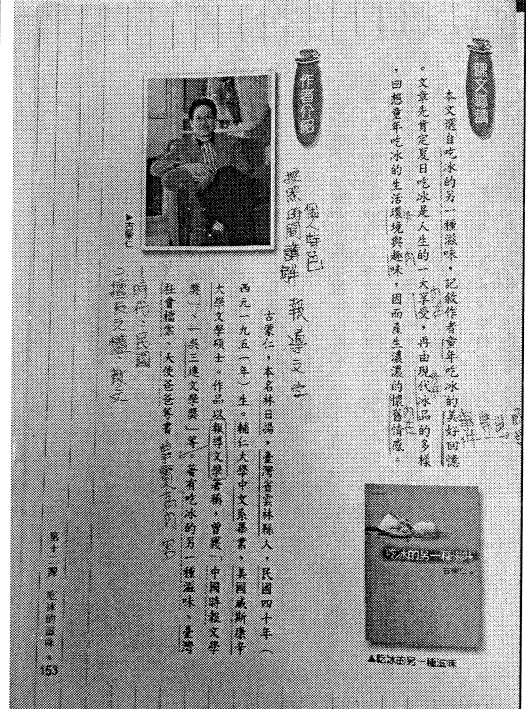 課文導讀
本文選自吃冰的另一種滋味，記敘作者童年吃冰的美好回憶
。文章先肯定夏日吃冰是人生的一大享受，再由現代冰品的多樣
，回想童年吃冰的生活環境與趣味，因而產生濃濃的懷舊情感。
吃冰的另一種滋味
古蒙仁
▲吃冰的另一種滋味
作者介紹
▲古蒙仁
個人特色
報導文學
古蒙仁，本名林日揚，臺灣省雲林縣人，民國四十年（
西元一九五一年）生。輔仁大學中文系畢業、美國威斯康辛
大學文學碩士。作品以報導文學著稱，曾獲「中國時報文學
獎」、「吳三連文學獎」等。著有吃冰的另一種滋味、臺灣
社會檔案、天使爸爸等書。
時代：民國
第十一課 吃冰的滋味。
153